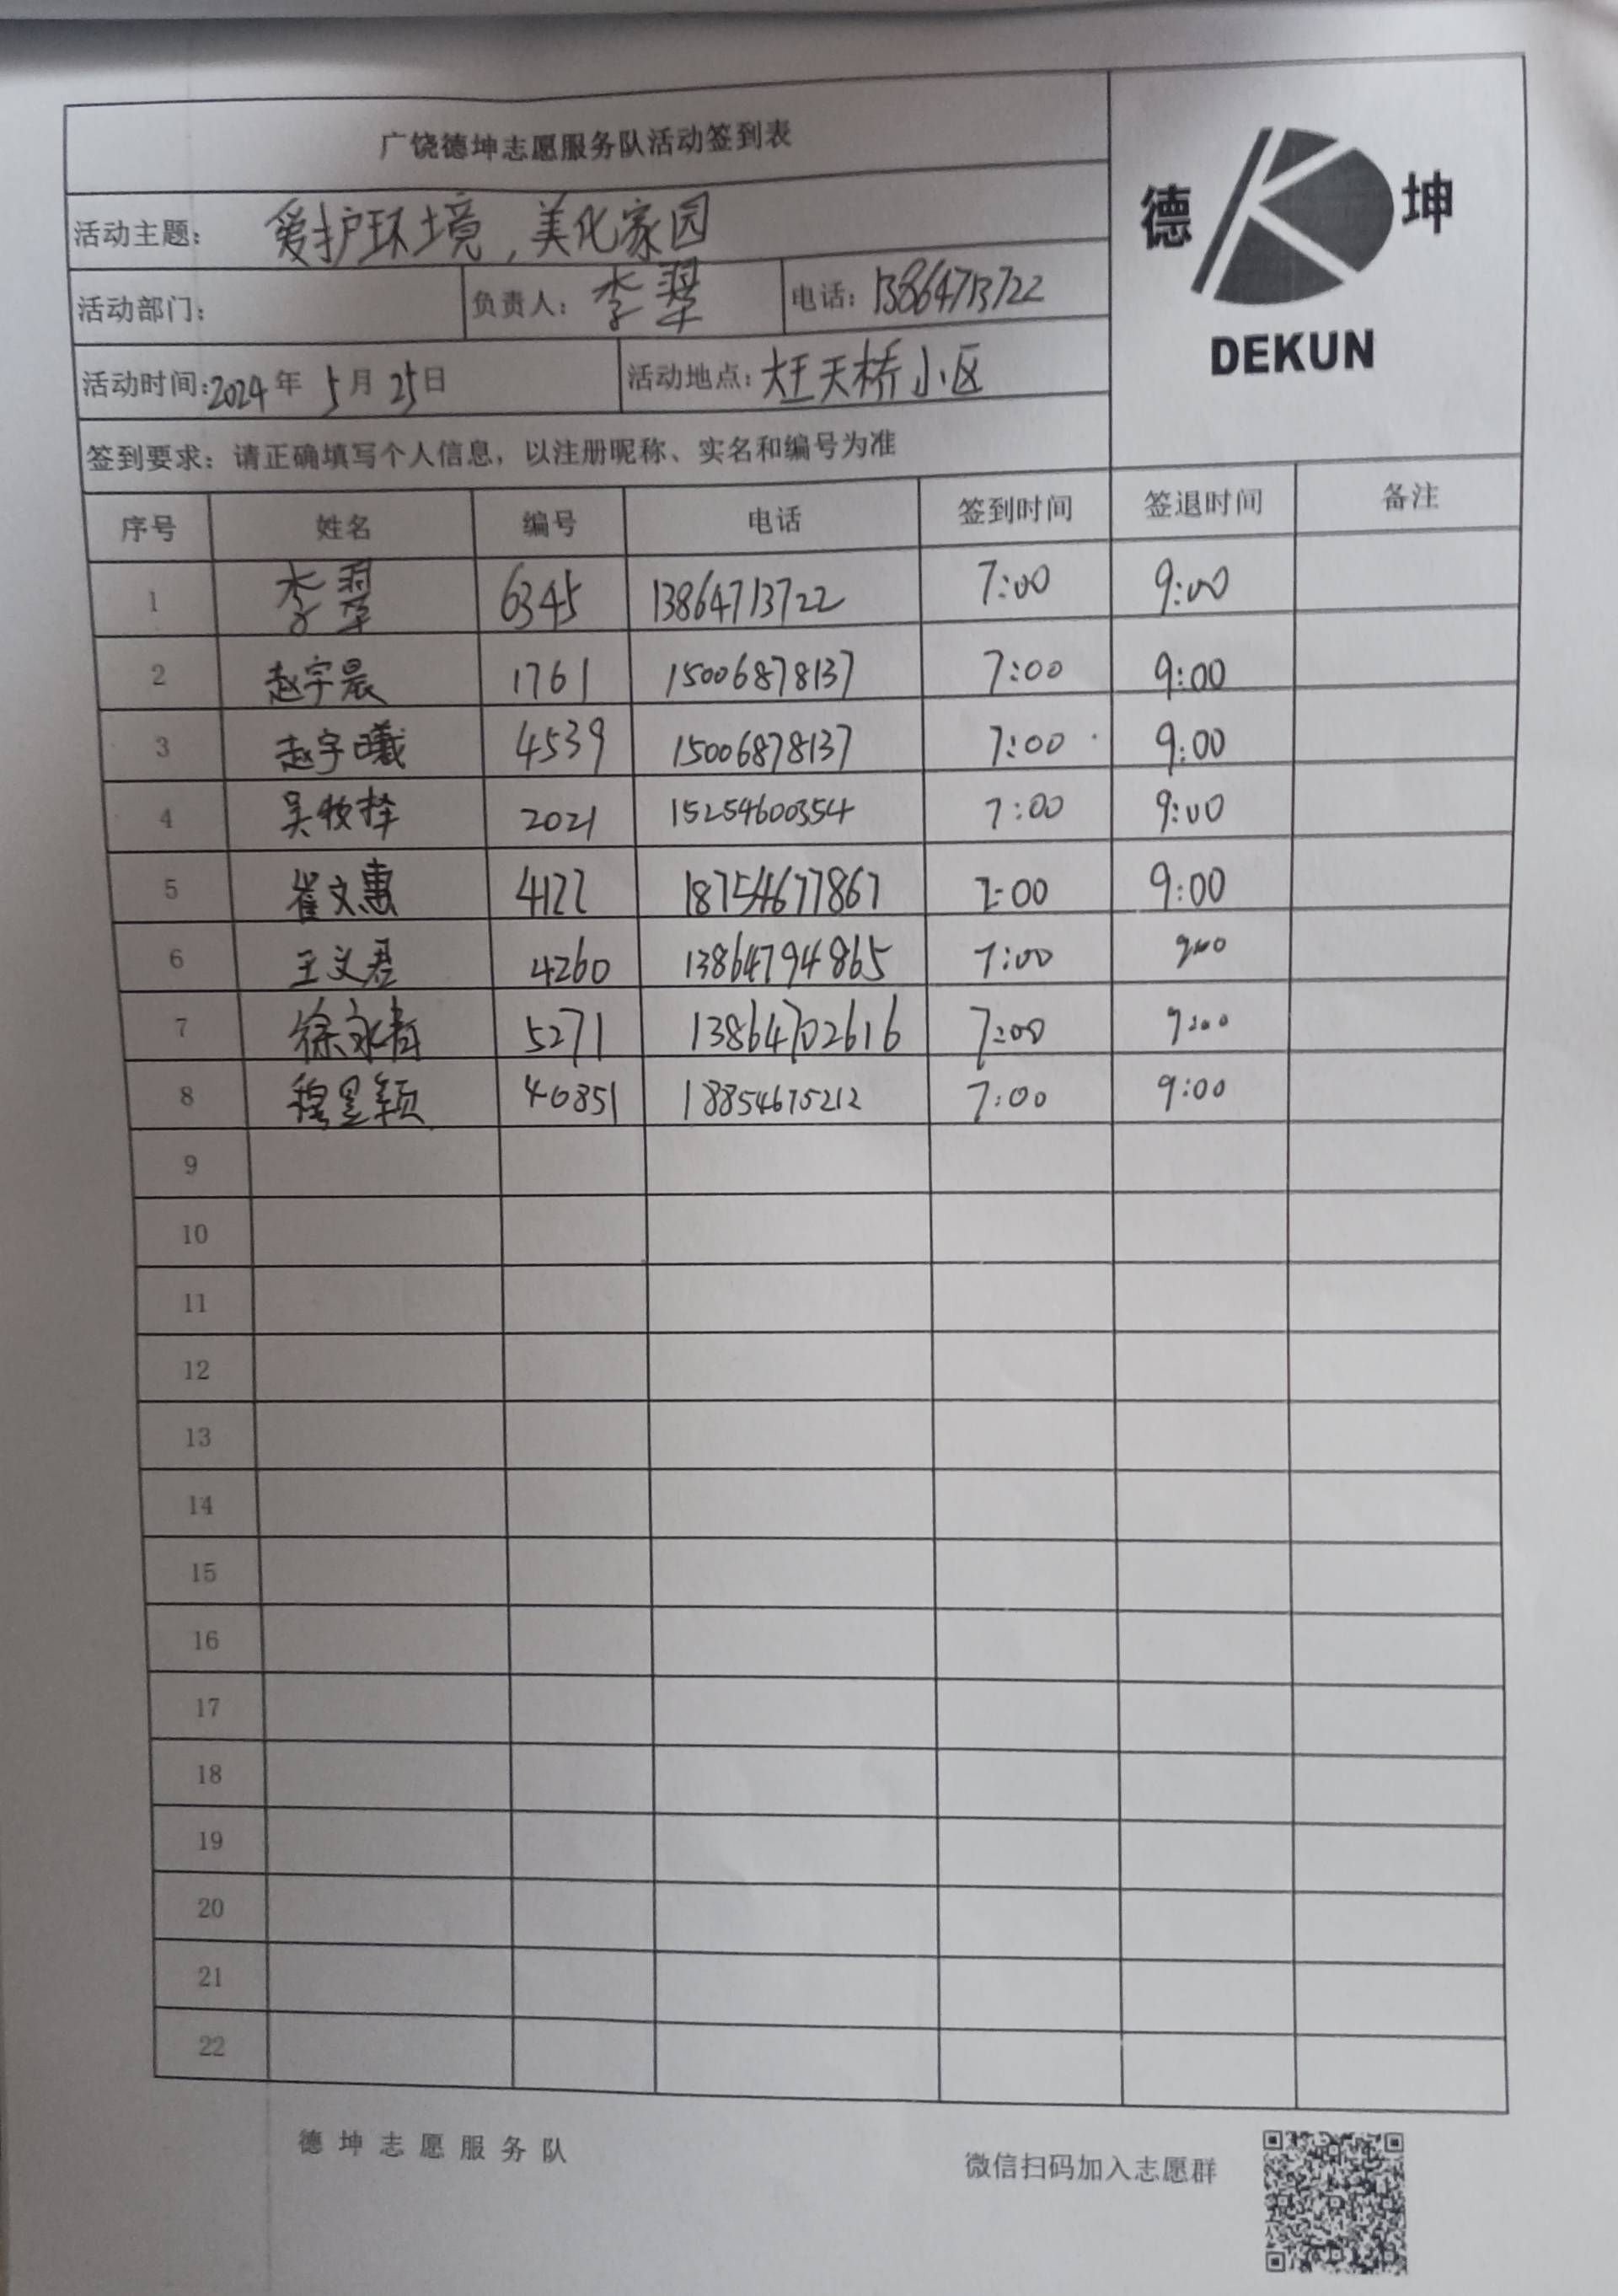 广饶德坤志愿服务队活动签到表
德 坤
DEKUN
活动主题： 爱护环境，美化家园
活动部门： 负责人：李翠 电话：13864713722
活动时间：2024年 5月 25日 活动地点：大王天桥小区
签到要求：请正确填写个人信息，以注册昵称、实名和编号为准
序号 姓名 编号 电话 签到时间 签退时间 备注
1 李翠 6345 13864713722 7:00 9:00
2 赵宇晨 1761 15006878137 7:00 9:00
3 赵宇曦 4539 15006878137 7:00 9:00
4 吴牧择 2021 15254600354 7:00 9:00
5 崔文惠 4122 18754677867 7:00 9:00
6 王文君 4260 13864794865 7:00 9:00
7 徐永 5271 13864702616 7:00 9:00
8 程昱颖 40851 18854675212 7:00 9:00
9
10
11
12
13
14
15
16
17
18
19
20
21
22
德坤志愿服务队 微信扫码加入志愿群